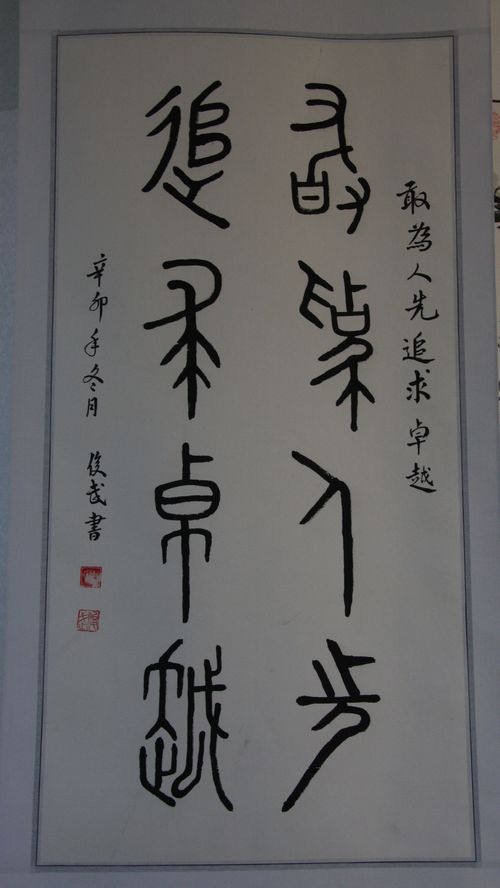 敢為人先追求卓越
敢為人先
追求卓越
辛卯年冬月 侯武書